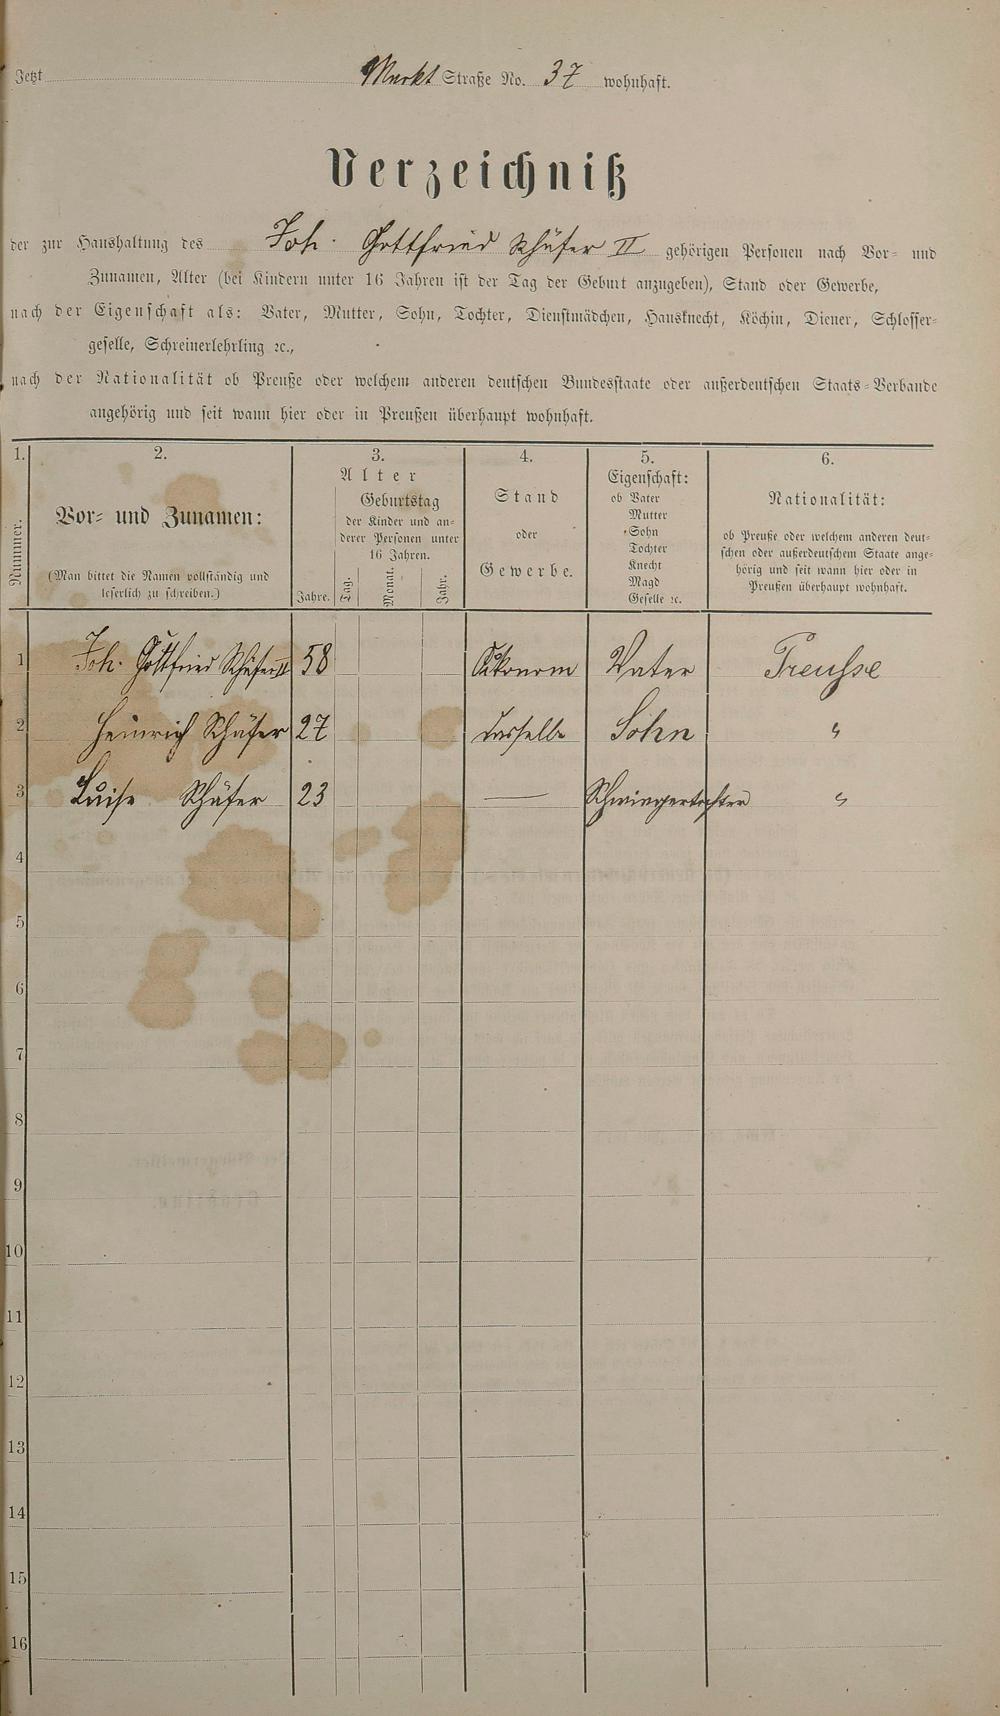 Jetzt Markt Straße No. 37 wohnhaft.
Verzeichniß
der zur Haushaltung des Joh. Gottfried Schäfer II gehörigen Personen nach Vor- und
Zunamen, Alter (bei Kindern unter 16 Jahren ist der Tag der Geburt anzugeben), Stand oder Gewerbe,
nach der Eigenschaft als: Vater, Mutter, Sohn, Tochter, Dienstmädchen, Hausknecht, Köchin, Diener, Schlosser-
geselle, Schreinerlehrling ꝛc.,
nach der Nationalität ob Preuße oder welchem anderen deutschen Bundesstaate oder außerdeutschen Staats-Verbande
angehörig und seit wann hier oder in Preußen überhaupt wohnhaft.
1. 2. 3. 4. 5. 6.
Nummer.
Vor- und Zunamen:
(Man bittet die Namen vollständig und
leserlich zu schreiben.)
Alter
Geburtstag
der Kinder und an-
derer Personen unter
16 Jahren.
Jahre. Tag. Monat. Jahr.
Stand
oder
Gewerbe.
Eigenschaft:
ob Vater
Mutter
Sohn
Tochter
Knecht
Magd
Geselle ꝛc.
Nationalität:
ob Preuße oder welchem anderen deut-
schen oder außerdeutschem Staate ange-
hörig und seit wann hier oder in
Preußen überhaupt wohnhaft.
1 Joh. Gottfried Schäfer II 58 Oekonom Vater Preusse
2 Heinrich Schäfer 27 dasselbe Sohn "
3 Luise Schäfer 23 — Schwiegertochter "
4
5
6
7
8
9
10
11
12
13
14
15
16